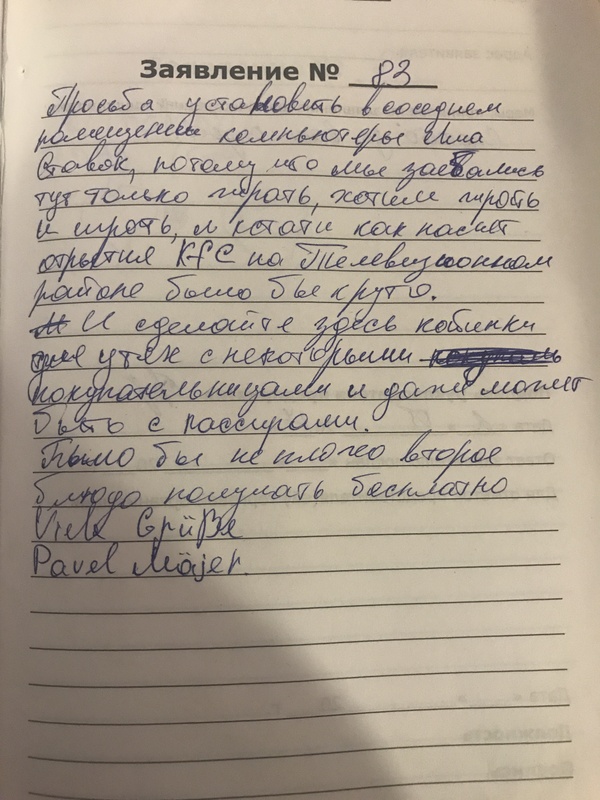 Заявление № 83
Просьба установить в соседнем
помещении компьютеры Лига
Ставок, потому что мы заебались
тут только жрать, хотим жрать
и играть, и кстати как насчет
открытия KFC на Телевизионном
районе было бы круто.
И сделайте здесь кабинки
для утех с некоторыми
покупательницами и даже может
быть с кассирами.
Было бы не плохо второе
блюдо получать бесплатно
Viele Grüße
Pavel Mäjer